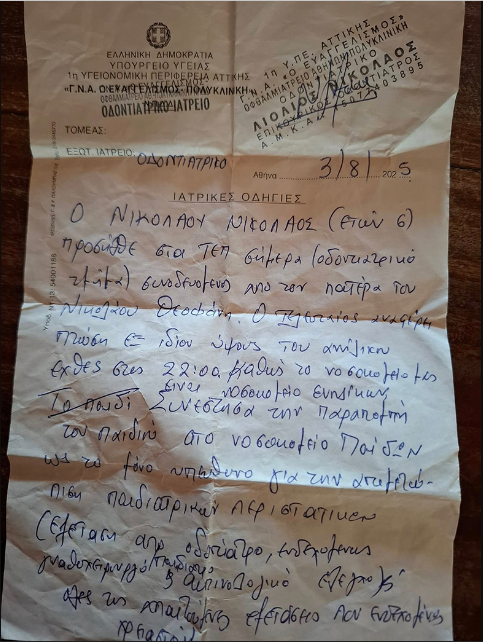 ΕΛΛΗΝΙΚΗ ΔΗΜΟΚΡΑΤΙΑ
ΥΠΟΥΡΓΕΙΟ ΥΓΕΙΑΣ
1η ΥΓΕΙΟΝΟΜΙΚΗ ΠΕΡΙΦΕΡΕΙΑ ΑΤΤΙΚΗΣ
«Γ.Ν.Α. Ο ΕΥΑΓΓΕΛΙΣΜΟΣ
ΠΟΛΥΚΛΙΝΙΚΗ»
ΟΔΟΝΤΙΑΤΡΙΚΟ ΙΑΤΡΕΙΟ
1η Υ.ΠΕ. ΑΤΤΙΚΗΣ
«Ο ΕΥΑΓΓΕΛΙΣΜΟΣ»
ΠΟΛΥΚΛΙΝΙΚΗ
ΟΔΟΝΤΙΑΤΡΙΚΟ
ΛΙΟΛΙΟΣ ΝΙΚΟΛΑΟΣ
Α.Μ.Κ.Α.
ΤΟΜΕΑΣ:
ΕΞΩΤ. ΙΑΤΡΕΙΟ: ΟΔΟΝΤΙΑΤΡΙΚΟ
Αθήνα 3/8/2025
ΙΑΤΡΙΚΕΣ ΟΔΗΓΙΕΣ
Ο ΝΙΚΟΛΑΟΥ ΝΙΚΟΛΑΟΣ (ετών 6)
προσήλθε στα ΤΕΠ σήμερα (οδοντιατρικό
τμήμα) συνοδευόμενος από τον πατέρα του
Νικολάου Θεοφάνη. Ο τελευταίος αναφέρει
πτώση εξ ιδίου ύψους του ανήλικου
εχθές στις 22:00. Καθώς το νοσοκομείο μας
είναι νοσοκομείο ενηλίκων
Συνέστησα την παραπομπή
του παιδιού στο νοσοκομείο Παίδων
ως το μόνο υπεύθυνο για την αντιμετώ-
πιση παιδιατρικών περιστατικών
(εξέταση από οδοντίατρο, ενδεχομένως
γναθοχειρουργό Παίδων,
ακτινολογικό έλεγχο &
όλες τις απαιτούμενες εξετάσεις που ενδεχομένως